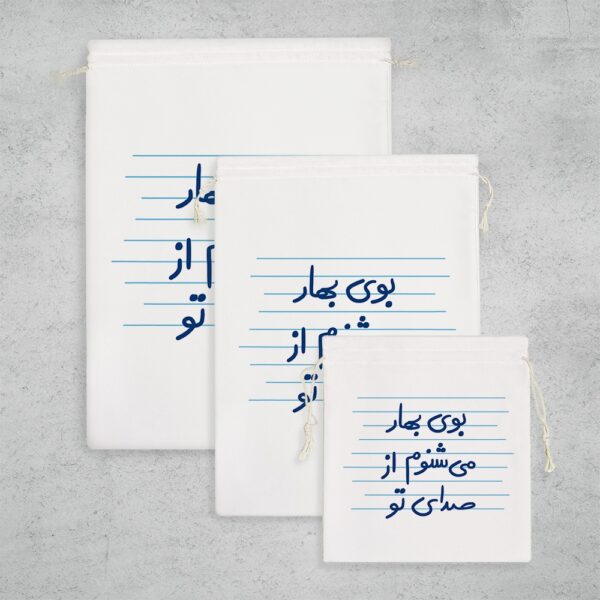 بهار
از
تو
بوی بهار
می‌شنوم از
تو
بوی بهار
می‌شنوم از
صدای تو